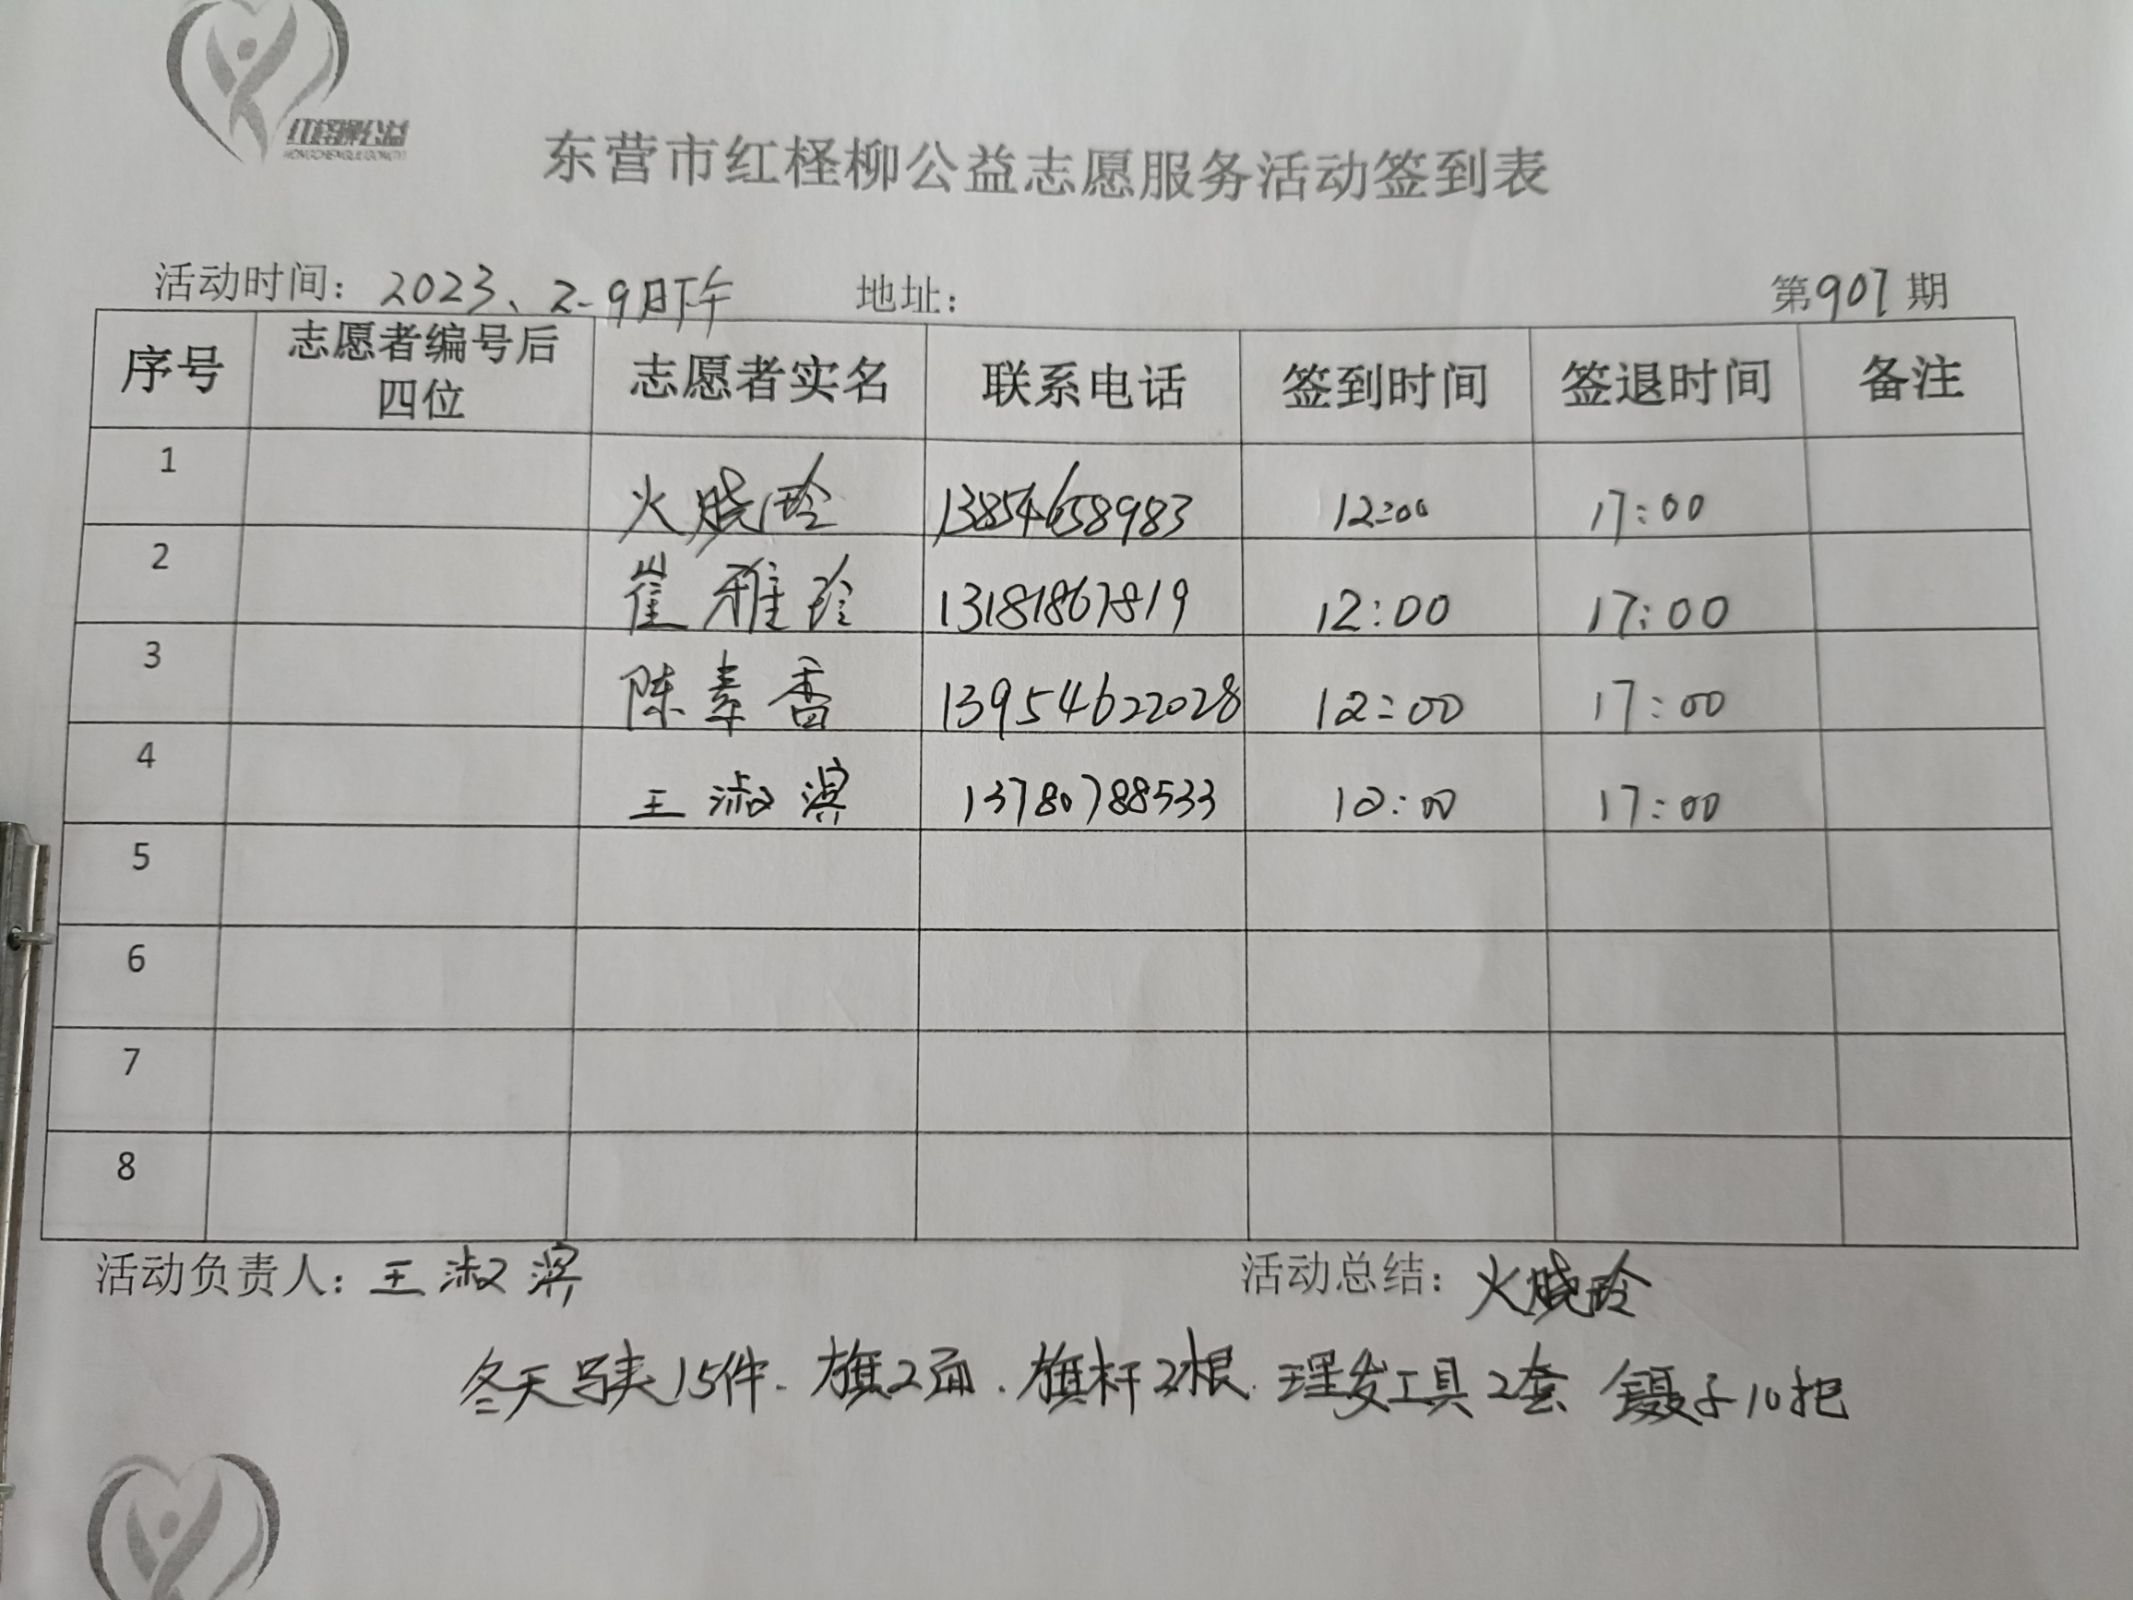 红柽柳公益
HONGCHENGLIUGONGYI
东营市红柽柳公益志愿服务活动签到表
活动时间：2023、2-9日下午 地址： 第907期
序号 志愿者编号后四位 志愿者实名 联系电话 签到时间 签退时间 备注
1 火晓玲 13854658983 12:00 17:00
2 崔雅玲 13181867819 12:00 17:00
3 陈素香 13954622028 12:00 17:00
4 王淑滨 13780788533 12:00 17:00
5
6
7
8
活动负责人：王淑滨 活动总结：火晓玲
冬天马夹15件. 旗2面. 旗杆2根. 理发工具2套 镊子10把